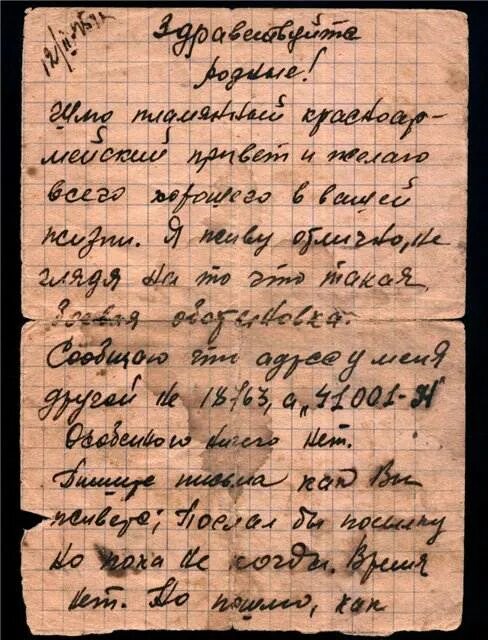 Здравствуйте
родные!
Шлю пламянный красноар-
мейский привет и желаю
всего хорошего в вашей
жизни. Я живу отлично, не
глядя на то что такая
боевая обстановка.
Сообщаю что адрес у меня
другой не 18763, а „41001-Н"
Особенного ничего нет.
Пишите письма как Вы
живете; Послал бы посылку
но пока не когда. Время
нет. Но пошлю, как